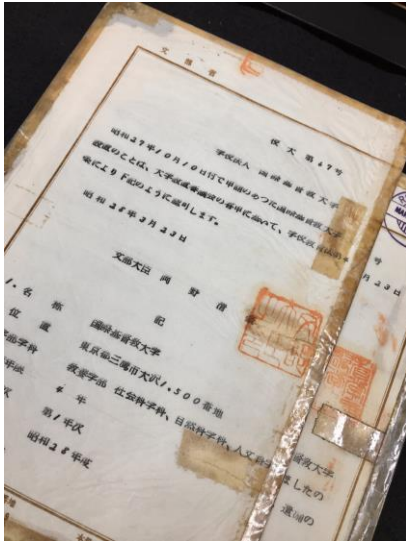 文部省
学校法人 国際基督教大学
昭和27年10月10日付で申請のあつた国際基督教大学
設置のことは、大学設置審議会の答申に基いて、学校教育法第
条により下記のように認可します。
昭和28年3月23日
文部大臣 岡野清
記
1. 名称 国際基督教大学
位置 東京都三鷹市大沢1,500番地
学部学科 教養学部 社会科学科、自然科学科、人文科学
4年
第1年次
昭和28年度
号
月23日
基督教大学
ましたの